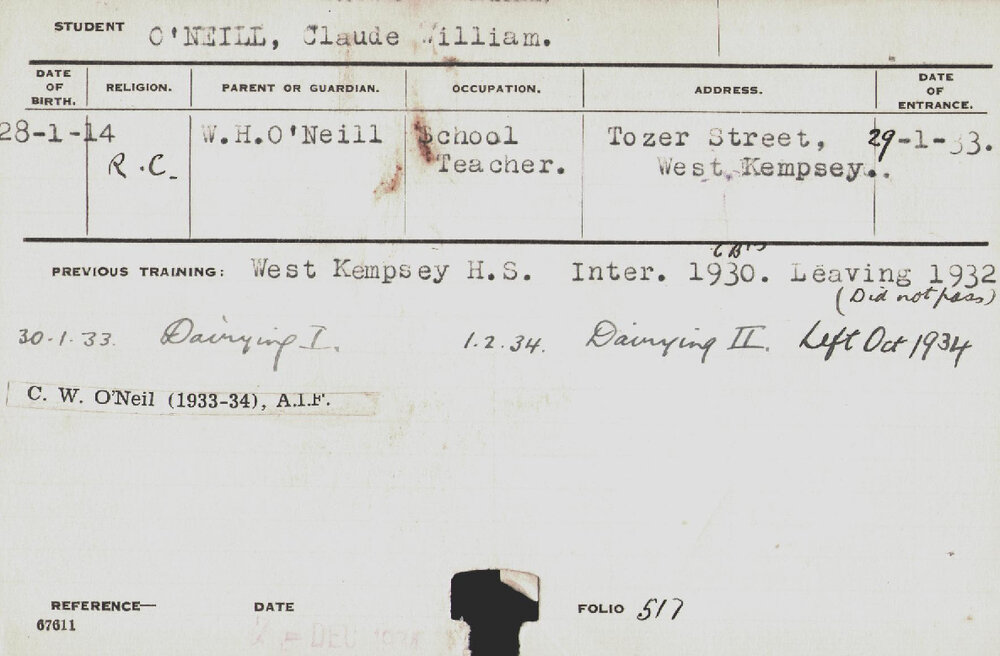 STUDENT O'NEILL, Claude William.
DATE OF BIRTH. RELIGION. PARENT OR GUARDIAN. OCCUPATION. ADDRESS. DATE OF ENTRANCE.
28-1-14 W.H.O'Neill School Tozer Street, 29-1-33.
R.C. Teacher. West Kempsey..
PREVIOUS TRAINING: West Kempsey H.S. Inter. 1930. Leaving 1932
(Did not pass)
30.1.33. Dairying I. 1.2.34. Dairying II. Left Oct 1934
C. W. O'Neil (1933-34), A.I.F.
REFERENCE— DATE FOLIO 517
67611